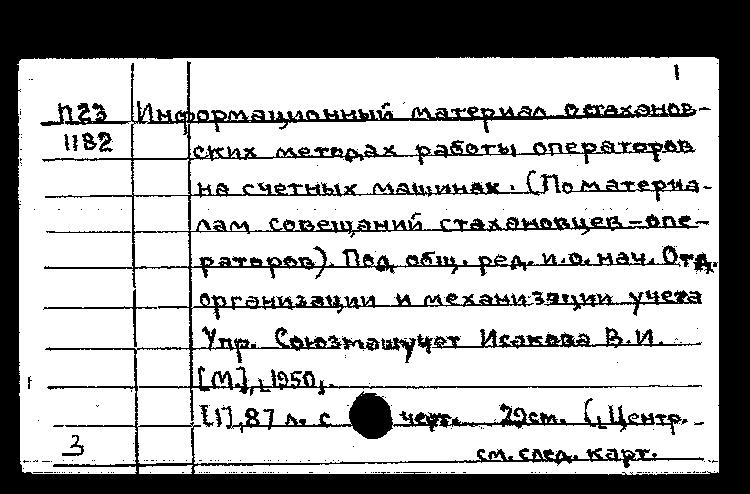 1
П23 Информационный материал о стаханов-
1182 ских методах работы операторов
на счетных машинах. (По материа-
лам совещаний стахановцев-опе-
раторов). Под общ. ред. и.о. нач. Отд.
организации и механизации учета
Упр. Союзмашучет Исакова В.И.
[М.], 1950.
[1], 87 л. с черт. 29см. (Центр.
3 см. след. карт.